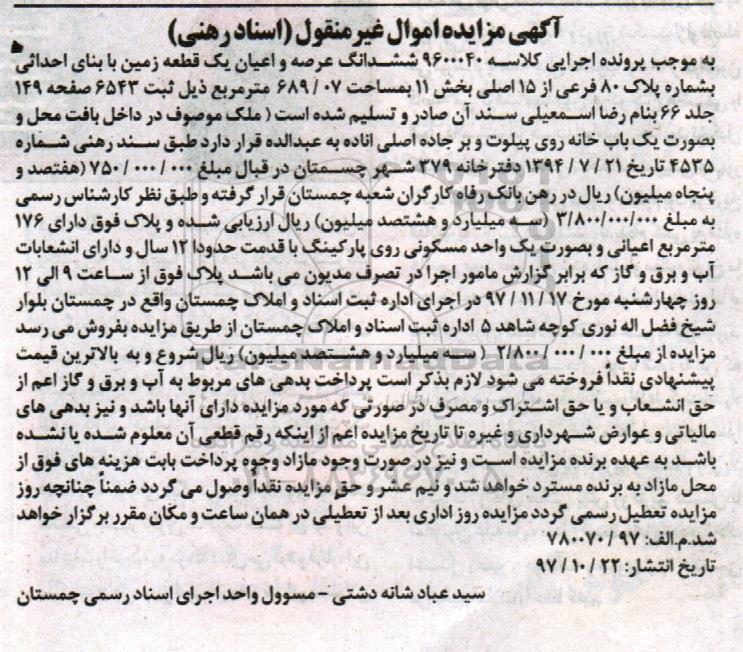 آگهی مزایده اموال غیر منقول (اسناد رهنی)
به موجب پرونده اجرایی کلاسه ۹۶۰۰۰۴۰ ششدانگ عرصه و اعیان یک قطعه زمین با بنای احداثی
بشماره پلاک ۸۰ فرعی از ۱۵ اصلی بخش ۱۱ بمساحت ۰۷ / ۶۸۹ مترمربع ذیل ثبت ۶۵۴۳ صفحه ۱۴۹
جلد ۶۶ بنام رضا اسمعیلی سند آن صادر و تسلیم شده است ( ملک موصوف در داخل بافت محل و
بصورت یک باب خانه روی پیلوت و بر جاده اصلی اناده به عبدالده قرار دارد طبق سند رهنی شماره
۴۵۳۵ تاریخ ۲۱ / ۷ / ۱۳۹۴ دفترخانه ۳۷۹ شهر چسمتان در قبال مبلغ ۰۰۰ / ۰۰۰ / ۷۵۰ (هفتصد و
پنجاه میلیون) ریال در رهن بانک رفاه کارگران شعبه چمستان قرار گرفته و طبق نظر کارشناس رسمی
به مبلغ ۳/۸۰۰/۰۰۰/۰۰۰ (سه میلیارد و هشتصد میلیون) ریال ارزیابی شده و پلاک فوق دارای ۱۷۶
مترمربع اعیانی و بصورت یک واحد مسکونی روی پارکینگ با قدمت حدودا ۱۲ سال و دارای انشعابات
آب و برق و گاز که برابر گزارش مامور اجرا در تصرف مدیون می باشد پلاک فوق از ساعت ۹ الی ۱۲
روز چهارشنبه مورخ ۱۷ / ۱۱ / ۹۷ در اجرای اداره ثبت اسناد و املاک چمستان واقع در چمستان بلوار
شیخ فضل اله نوری کوچه شاهد ۵ اداره ثبت اسناد و املاک چمستان از طریق مزایده بفروش می رسد
مزایده از مبلغ ۰۰۰ / ۰۰۰ / ۲/۸۰۰ ( سه میلیارد و هشتصد میلیون) ریال شروع و به بالاترین قیمت
پیشنهادی نقداً فروخته می شود لازم بذکر است پرداخت بدهی های مربوط به آب و برق و گاز اعم از
حق انشعاب و یا حق اشتراک و مصرف در صورتی که مورد مزایده دارای آنها باشد و نیز بدهی های
مالیاتی و عوارض شهرداری و غیره تا تاریخ مزایده اعم از اینکه رقم قطعی آن معلوم شده یا نشده
باشد به عهده برنده مزایده است و نیز در صورت وجود مازاد وجوه پرداخت بابت هزینه های فوق از
محل مازاد به برنده مسترد خواهد شد و نیم عشر و حق مزایده نقداً وصول می گردد ضمناً چنانچه روز
مزایده تعطیل رسمی گردد مزایده روز اداری بعد از تعطیلی در همان ساعت و مکان مقرر برگزار خواهد
شد.م.الف: ۹۷ / ۷۸۰۰۷۰
تاریخ انتشار: ۲۲ / ۱۰ / ۹۷
سید عباد شانه دشتی - مسوول واحد اجرای اسناد رسمی چمستان
ParsNamadData